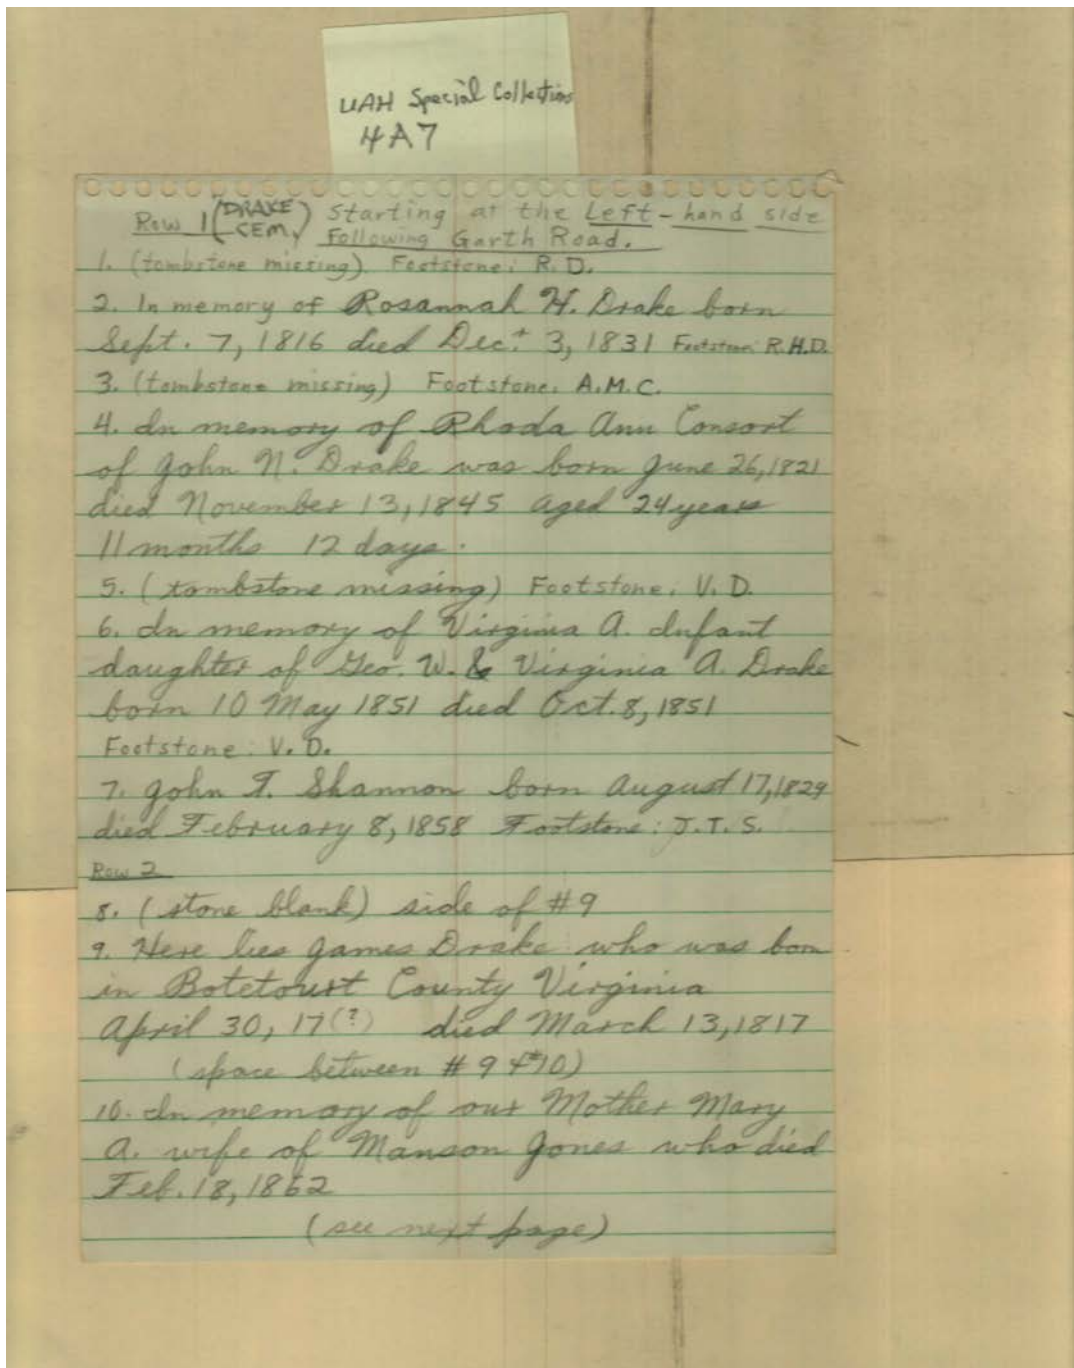 UAH Special Collections
4A7
Row 1 (DRAKE CEM.) Starting at the Left-hand side
Following Garth Road.
1. (tombstone missing) Footstone: R.D.
2. In memory of Rosannah H. Drake born
Sept. 7, 1816 died Dec. 3, 1831 Footstone: R.H.D.
3. (tombstone missing) Footstone: A.M.C.
4. In memory of Rhoda Ann Consort
of John N. Drake was born June 26, 1821
died November 13, 1845 aged 24 years
11 months 12 days.
5. (tombstone missing) Footstone: V.D.
6. In memory of Virginia A. Infant
daughter of Geo. W. & Virginia A. Drake
born 10 May 1851 died Oct. 8, 1851
Footstone: V.D.
7. John T. Shannon born August 17, 1829
died February 8, 1858 Footstone: J.T.S.
Row 2
8. (stone blank) side of #9
9. Here lies James Drake who was born
in Botetourt County Virginia
April 30, 17(?) died March 13, 1817
(space between #9 & #10)
10. In memory of our Mother Mary
A. wife of Manson Jones who died
Feb. 18, 1862
(see next page)